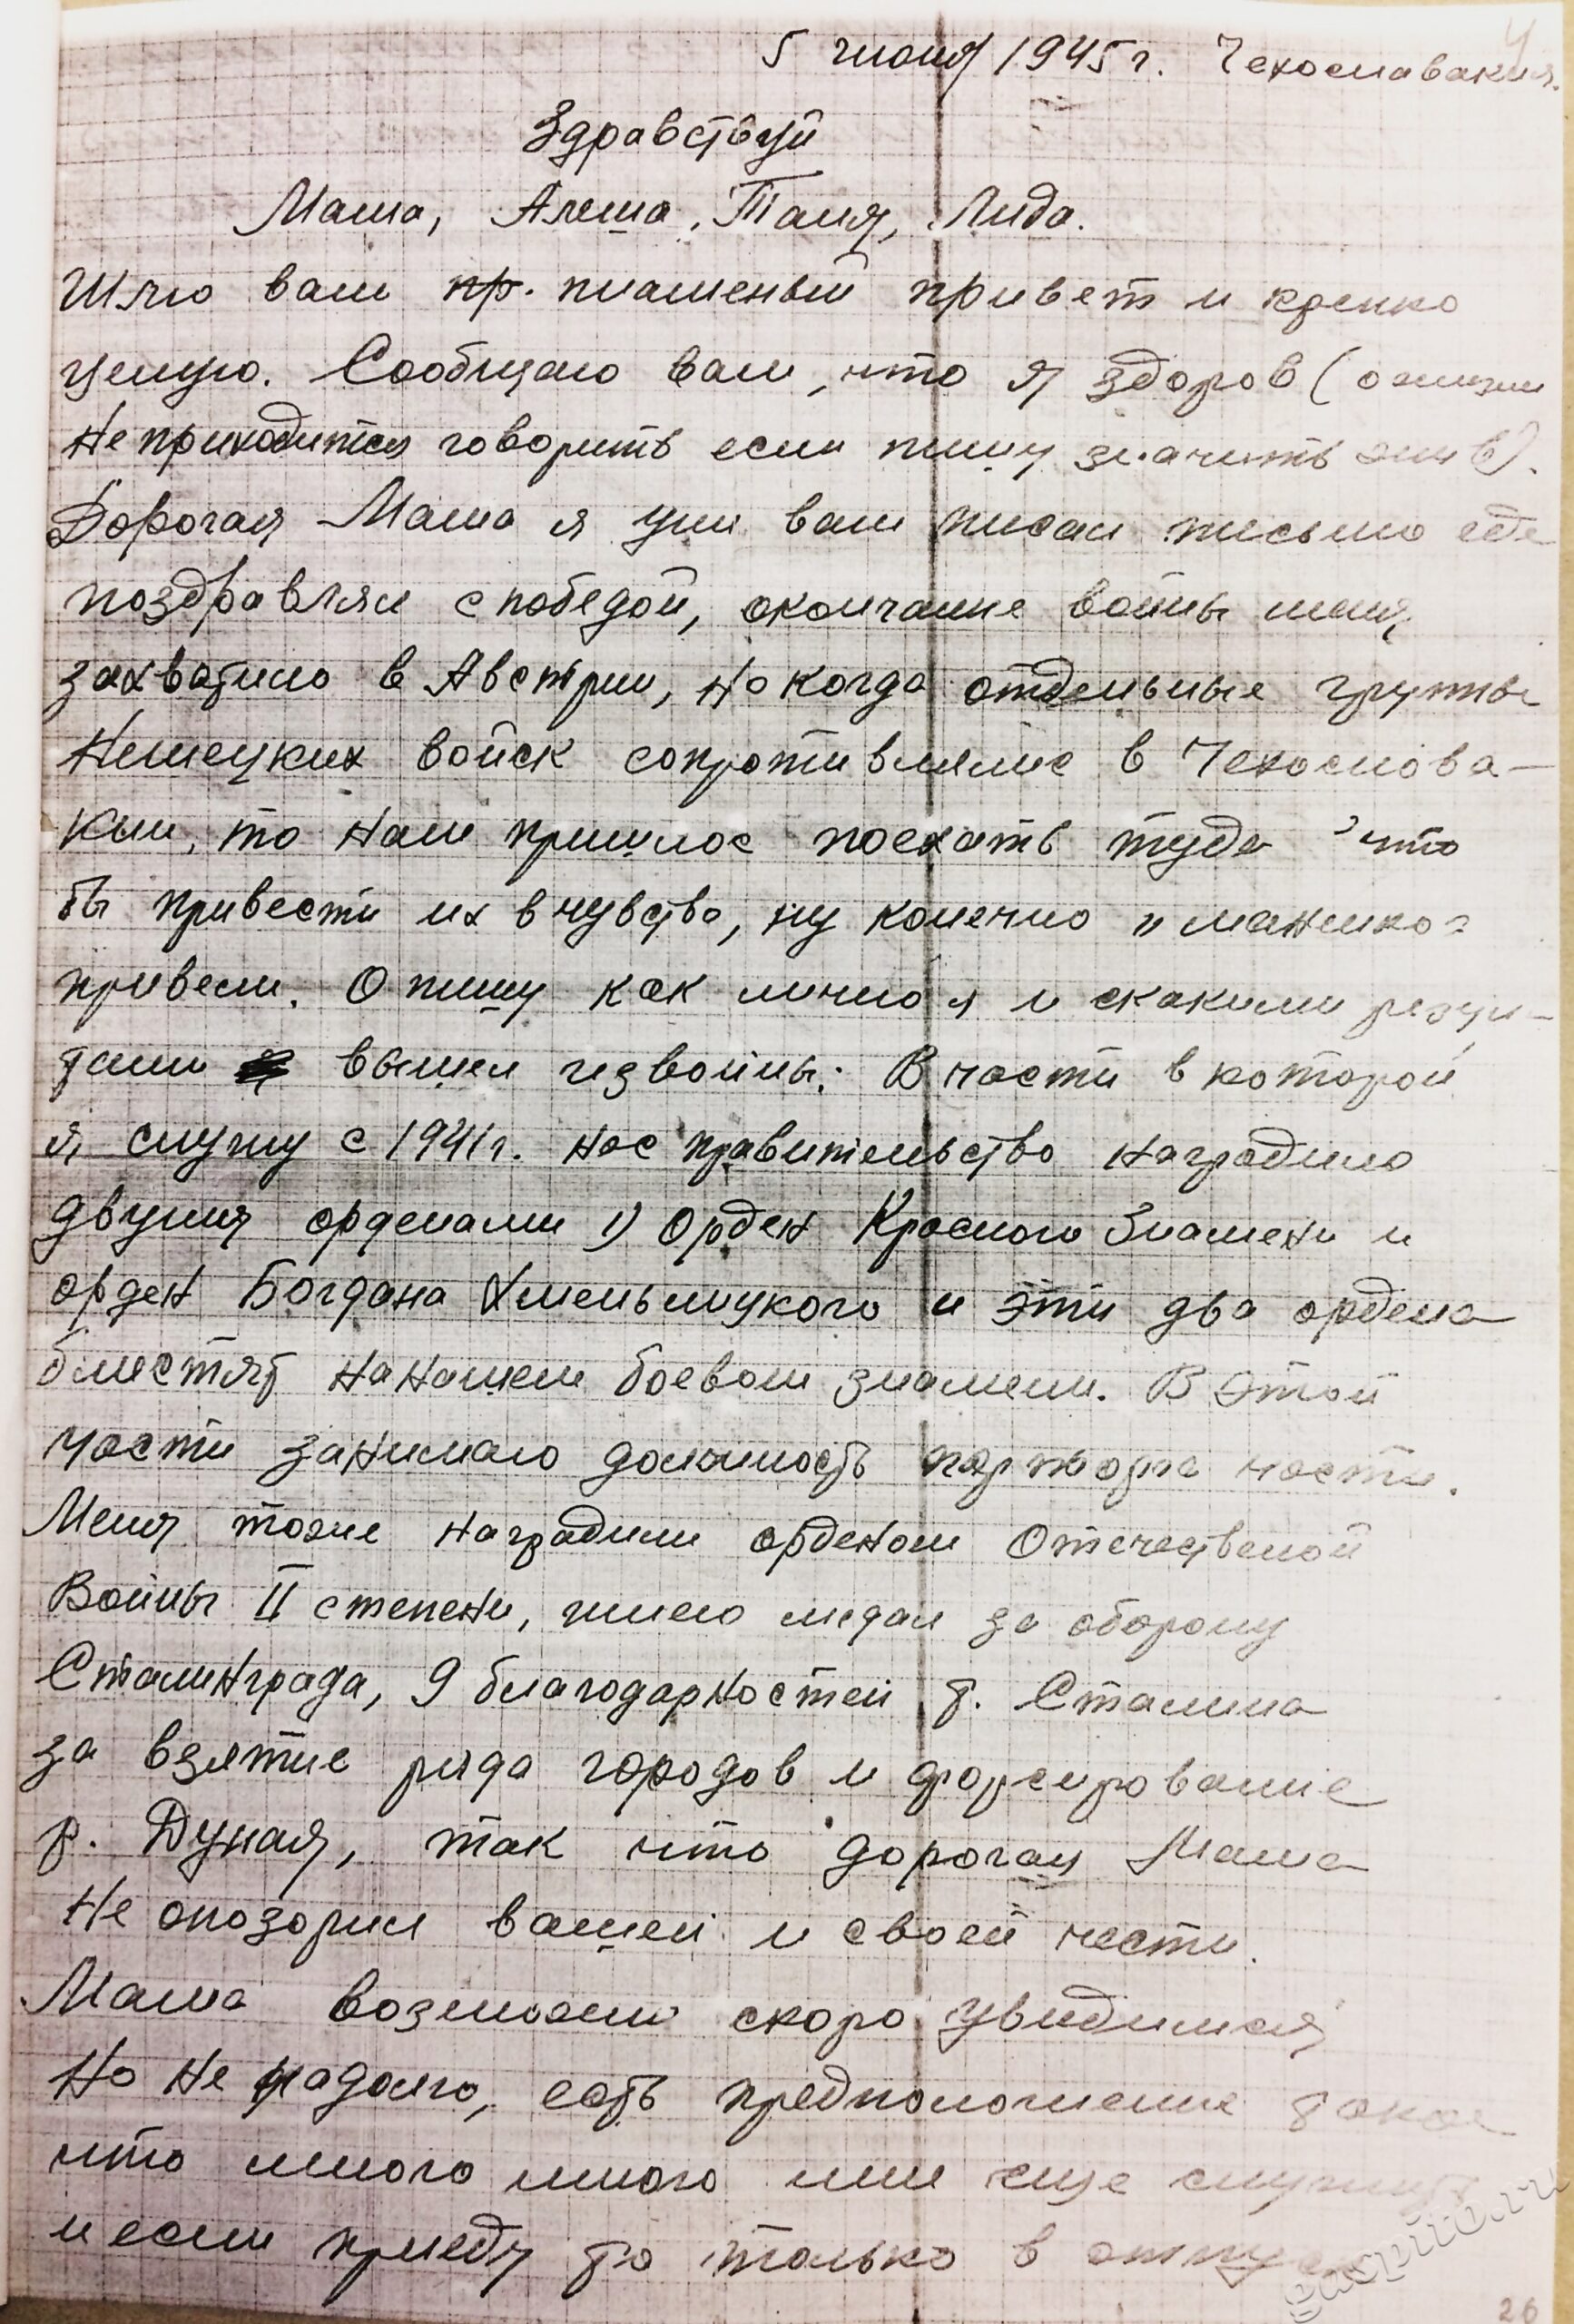 4
5 июня 1945 г. Чехославакия.
Здравствуй
Маша, Алеша, Таня, Лида.
Шлю вам пр. пламеный привет и крепко
целую. Сообщаю вам, что я здоров (о жизни
не приходится говорить если пишу значить жив).
Дорогая Маша я уже вам писал письмо где
поздравлял с победой, окончание войны меня
захватило в Австрии, но когда отдельные группы
Немецких войск сопротивлялис в Чехослова-
кии, то нам пришлос поехать туда что
бы привести их в чувство, ну конечно и
привели. Опишу как лично я и скакими резул-
тами вышел из войны: В части в которой
я служу с 1941 г. нас правительство наградило
двумя орденами 1) Орден Красного Знамени и
орден Богдана Хмельницкого и эти два ордена
блестят на нашем боевом знамени. В этой
части занимаю должность парторга части.
Меня тоже наградили орденом Отечественой
Войны II степени, имею медал за оборону
Сталинграда, 9 благодарностей т. Сталина
за взятие ряда городов и форсирование
р. Дуная, так что дорогая Маша
не опозорил вашей и своей чести.
Маша возможно скоро увидимся
но не надолго, есть предположение такое
что много много мне еще служить
и если приеду то только в отпуск
gaspito.ru
26